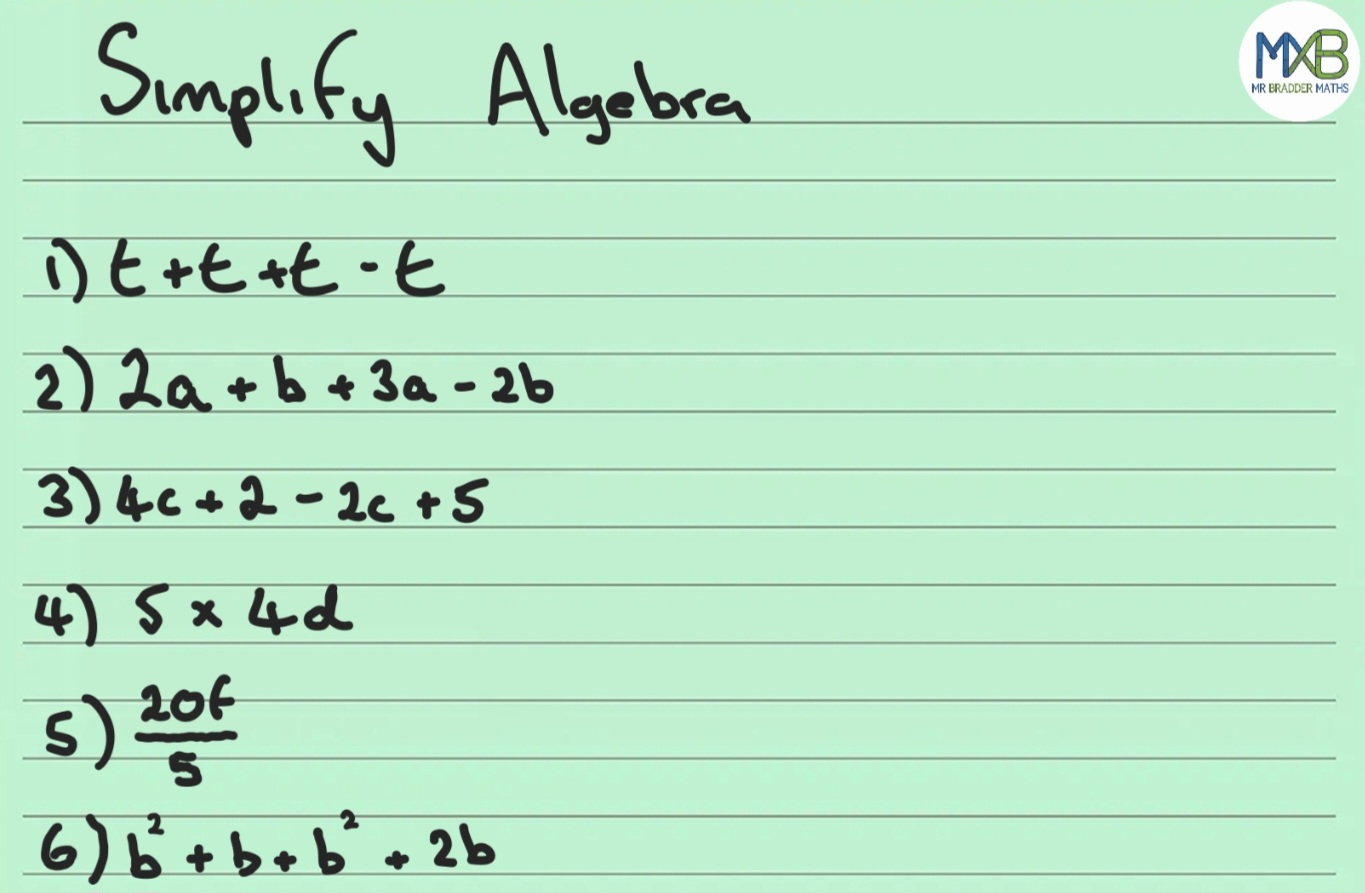 Simplify Algebra
MXB
MR BRADDER MATHS
1) t + t + t - t
2) 2a + b + 3a - 2b
3) 4c + 2 - 2c + 5
4) 5 × 4d
5) 20f
5
6) b² + b + b² + 2b